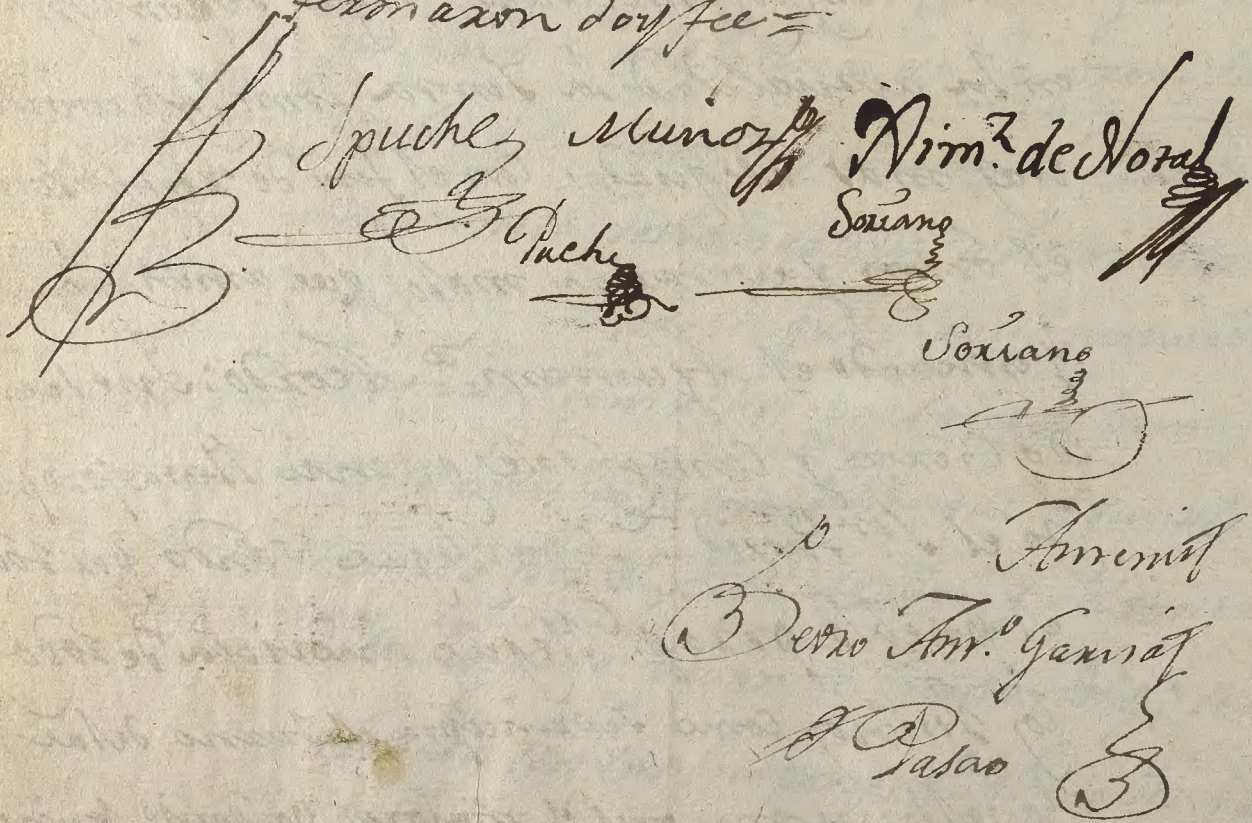 firmaron doy fee =
Spuche Muñoz Xim.z de Notal
Puche Soriano
Soriano
Ante mi
Pedro Ant.o Garcia
Pasao